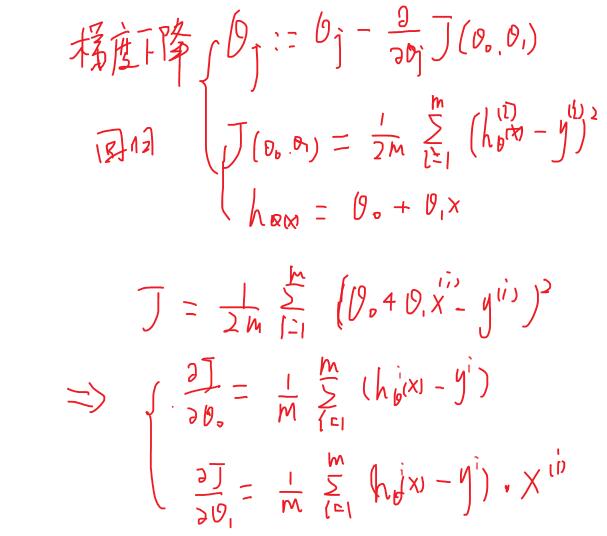 梯度下降 { θ_j := θ_j - ∂/∂θ_j J(θ₀,θ₁)
回归 J(θ₀,θ₁) = 1/2m Σ_{i=1}^{m} (h_θ(x)^{(i)} - y^{(i)})²
h_θ(x) = θ₀ + θ₁x
J = 1/2m Σ_{i=1}^{m} (θ₀ + θ₁x^{(i)} - y^{(i)})²
⇒ { ∂J/∂θ₀ = 1/m Σ_{i=1}^{m} (h_θ^i(x) - y^i)
∂J/∂θ₁ = 1/m Σ_{i=1}^{m} h_θ^i(x) - y^i) · x^{(i)}